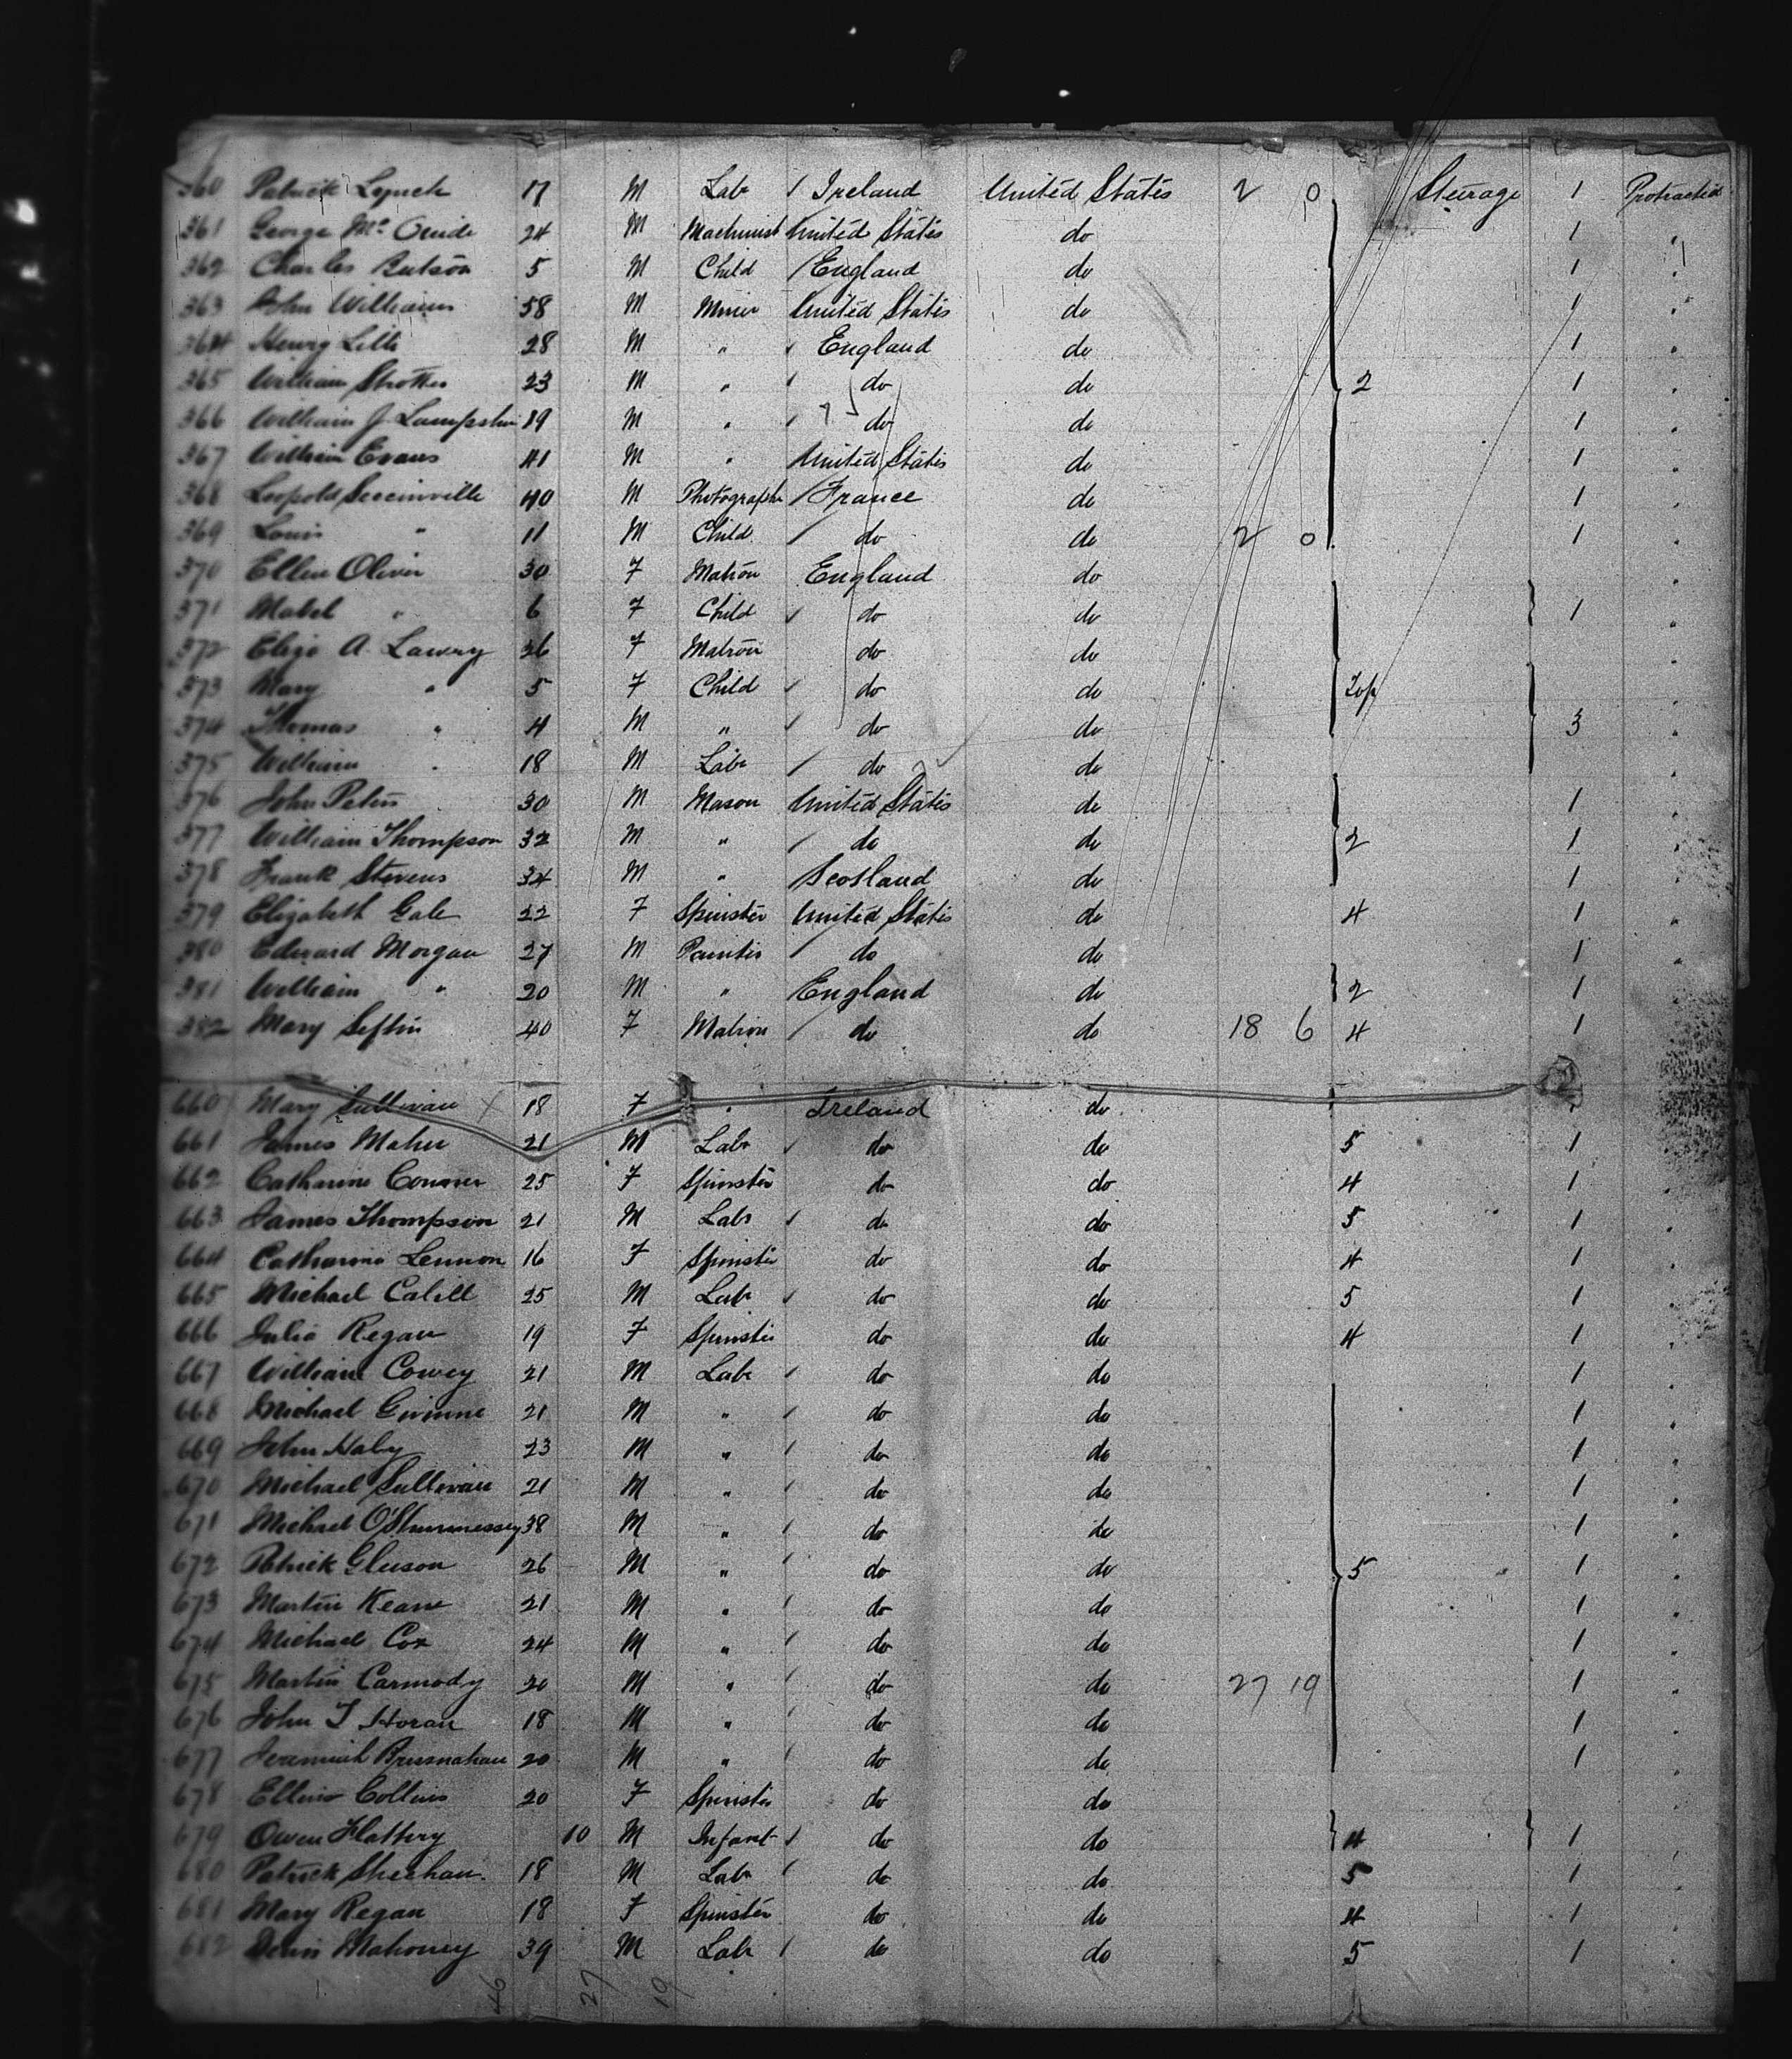 360 Patrick Lynch 17 M Labr / Ireland United States 2 0 Steurage 1 Protracted
361 George Mc 24 M Machinist United States do 1 "
362 Charles Butson 5 M Child / England do 1 "
363 John Williams 58 M Miner United States do 1 "
364 Henry 28 M " / England do 1 "
365 William 23 M " / do do 2 1 "
366 William J. 19 M " / do do 1 "
367 William Evans 41 M " United States do 1 "
368 Leopold 40 M Photographer / France do 1 "
369 Louis " 11 M Child / do do 2 0 1
370 Ellen Oliver 30 F Matron England do "
371 Mabel " 6 F Child / do do 1 "
372 Eliza A. Lawry 26 F Matron do do "
373 Mary " 5 F Child / do do Top "
374 Thomas " 4 M " / do do 3 "
375 William " 18 M Labr / do do "
376 John Peters 30 M Mason United States do 1 "
377 William Thompson 32 M " / do do 2 1 "
378 Frank Stevens 34 M " Scotland do 1 "
379 Elizabeth Gale 22 F Spinster United States do 4 1 "
380 Edward Morgan 27 M Painter / do do 1 "
381 William " 20 M " England do 2 1 "
382 Mary 40 F Matron / do do 18 6 4 1
660 Mary Sullivan 18 F " Ireland do
661 James Maher 21 M Labr / do do 5 1
662 Catharine Connor 25 F Spinster do do 4 1 "
663 James Thompson 21 M Labr / do do 5 1 "
664 Catharine Lennon 16 F Spinster do do 4 1 "
665 Michael Cahill 25 M Labr / do do 5 1 "
666 Julia Regan 19 F Spinster do do 4 1 "
667 William 21 M Labr / do do 1 "
668 Michael 21 M " / do do 1 "
669 John 23 M " / do do 1 "
670 Michael Sullivan 21 M " / do do 1 "
671 Michael 38 M " / do do 1 "
672 Patrick Gleeson 26 M " / do do 5 1 "
673 Martin Keane 21 M " / do do 1 "
674 Michael Cox 24 M " / do do 1 "
675 Martin Carmody 20 M " / do do 27 19 1 "
676 John T Horan 18 M " / do do 1 "
677 Jeramiah Brusnahan 20 M " / do do 1
678 Collins 20 F Spinster do do "
679 Owen Flattery 10 M Infant / do do 4 1 "
680 Patrick Sheehan 18 M Labr / do do 5 1 "
681 Mary Regan 18 F Spinster do do 4 1 "
682 Mahoney 39 M Labr / do do 5 1 "
46 27 19